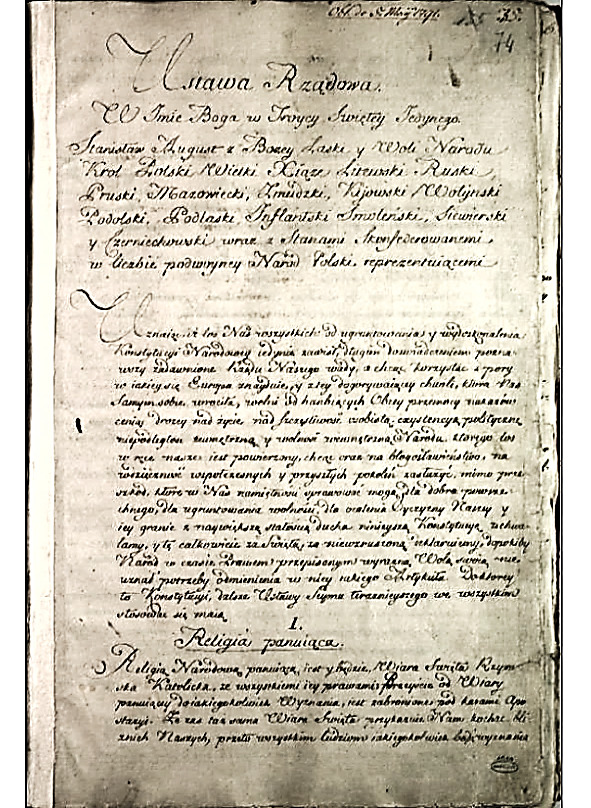 Obl. de 5. Maij 1791.
74
Ustawa Rządowa.
W Jmie Boga w Troycy Swiętey Jedynego.
Stanisław August z Bożey Łaski y Woli Narodu
Krol Polski Wielki Xiąże Litewski Ruski
Pruski, Mazowiecki, Zmudzki, Kijowski Wołynski
Podolski, Podlaski, Jnflantski Smoleński, Siewierski
y Czerniechowski wraz z Stanami Skonfederowanemi
w liczbie podwoyney Narod Polski reprezentuiącemi
Uznaiąc iż los Nas wszystkich od ugruntowania y wydoskonalenia
Konstytucyi Narodowey iedynie zawisł, długim doświadczeniem pozna-
wszy zadawnione Rządu Naszego wady, a chcąc korzystać z pory
w iakiey się Europa znayduie, y z tey dogorywaiącey chwili, która Nas
Samym sobie wrociła, wolni od hańbiących Obcey przemocy nakazów
ceniąc drożey nad życie, nad szczęśliwość osobistą, egzystencyą polityczną
niepodległość zewnętrzną y wolność wewnętrzną Narodu, ktorego los
w ręce nasze iest powierzony, chcąc oraz na błogosławieństwo, na
wdzięczność współczesnych y przyszłych pokoleń zasłużyć, mimo prze-
szkód, które w Nas namiętności sprawować mogą, dla dobra powsze-
chnego, dla ugruntowania wolności, dla ocalenia Oyczyzny Naszey y
iey granic z naywiększą stałością ducha ninieyszą Konstytucyą uchwa-
lamy, y tę całkowicie za Swiętą, za niewzruszoną deklaruiemy, dopokiby
Narod w czasie Prawem przepisanym wyraźną Wolą swoią nie
uznał potrzeby odmienienia w niey iakiego Artykułu. Do ktorey
to Konstytucyi, dalsze Ustawy Seymu teraznieyszego we wszystkim
stosować się maią
I.
Religia panuiąca.
Religią Narodową panuiącą iest y będzie, Wiara Swięta Rzym-
ska Katolicka, ze wszystkiemi iey prawami. Przeyście od Wiary
panuiącey do iakiegokolwiek Wyznania, iest zabronione pod karami Apo-
stazyi. Ze zaś taż sama Wiara Swięta przykazuie Nam kochać bli-
znich Naszych, przeto wszystkim ludziom iakiegokolwiek bądź wyznania